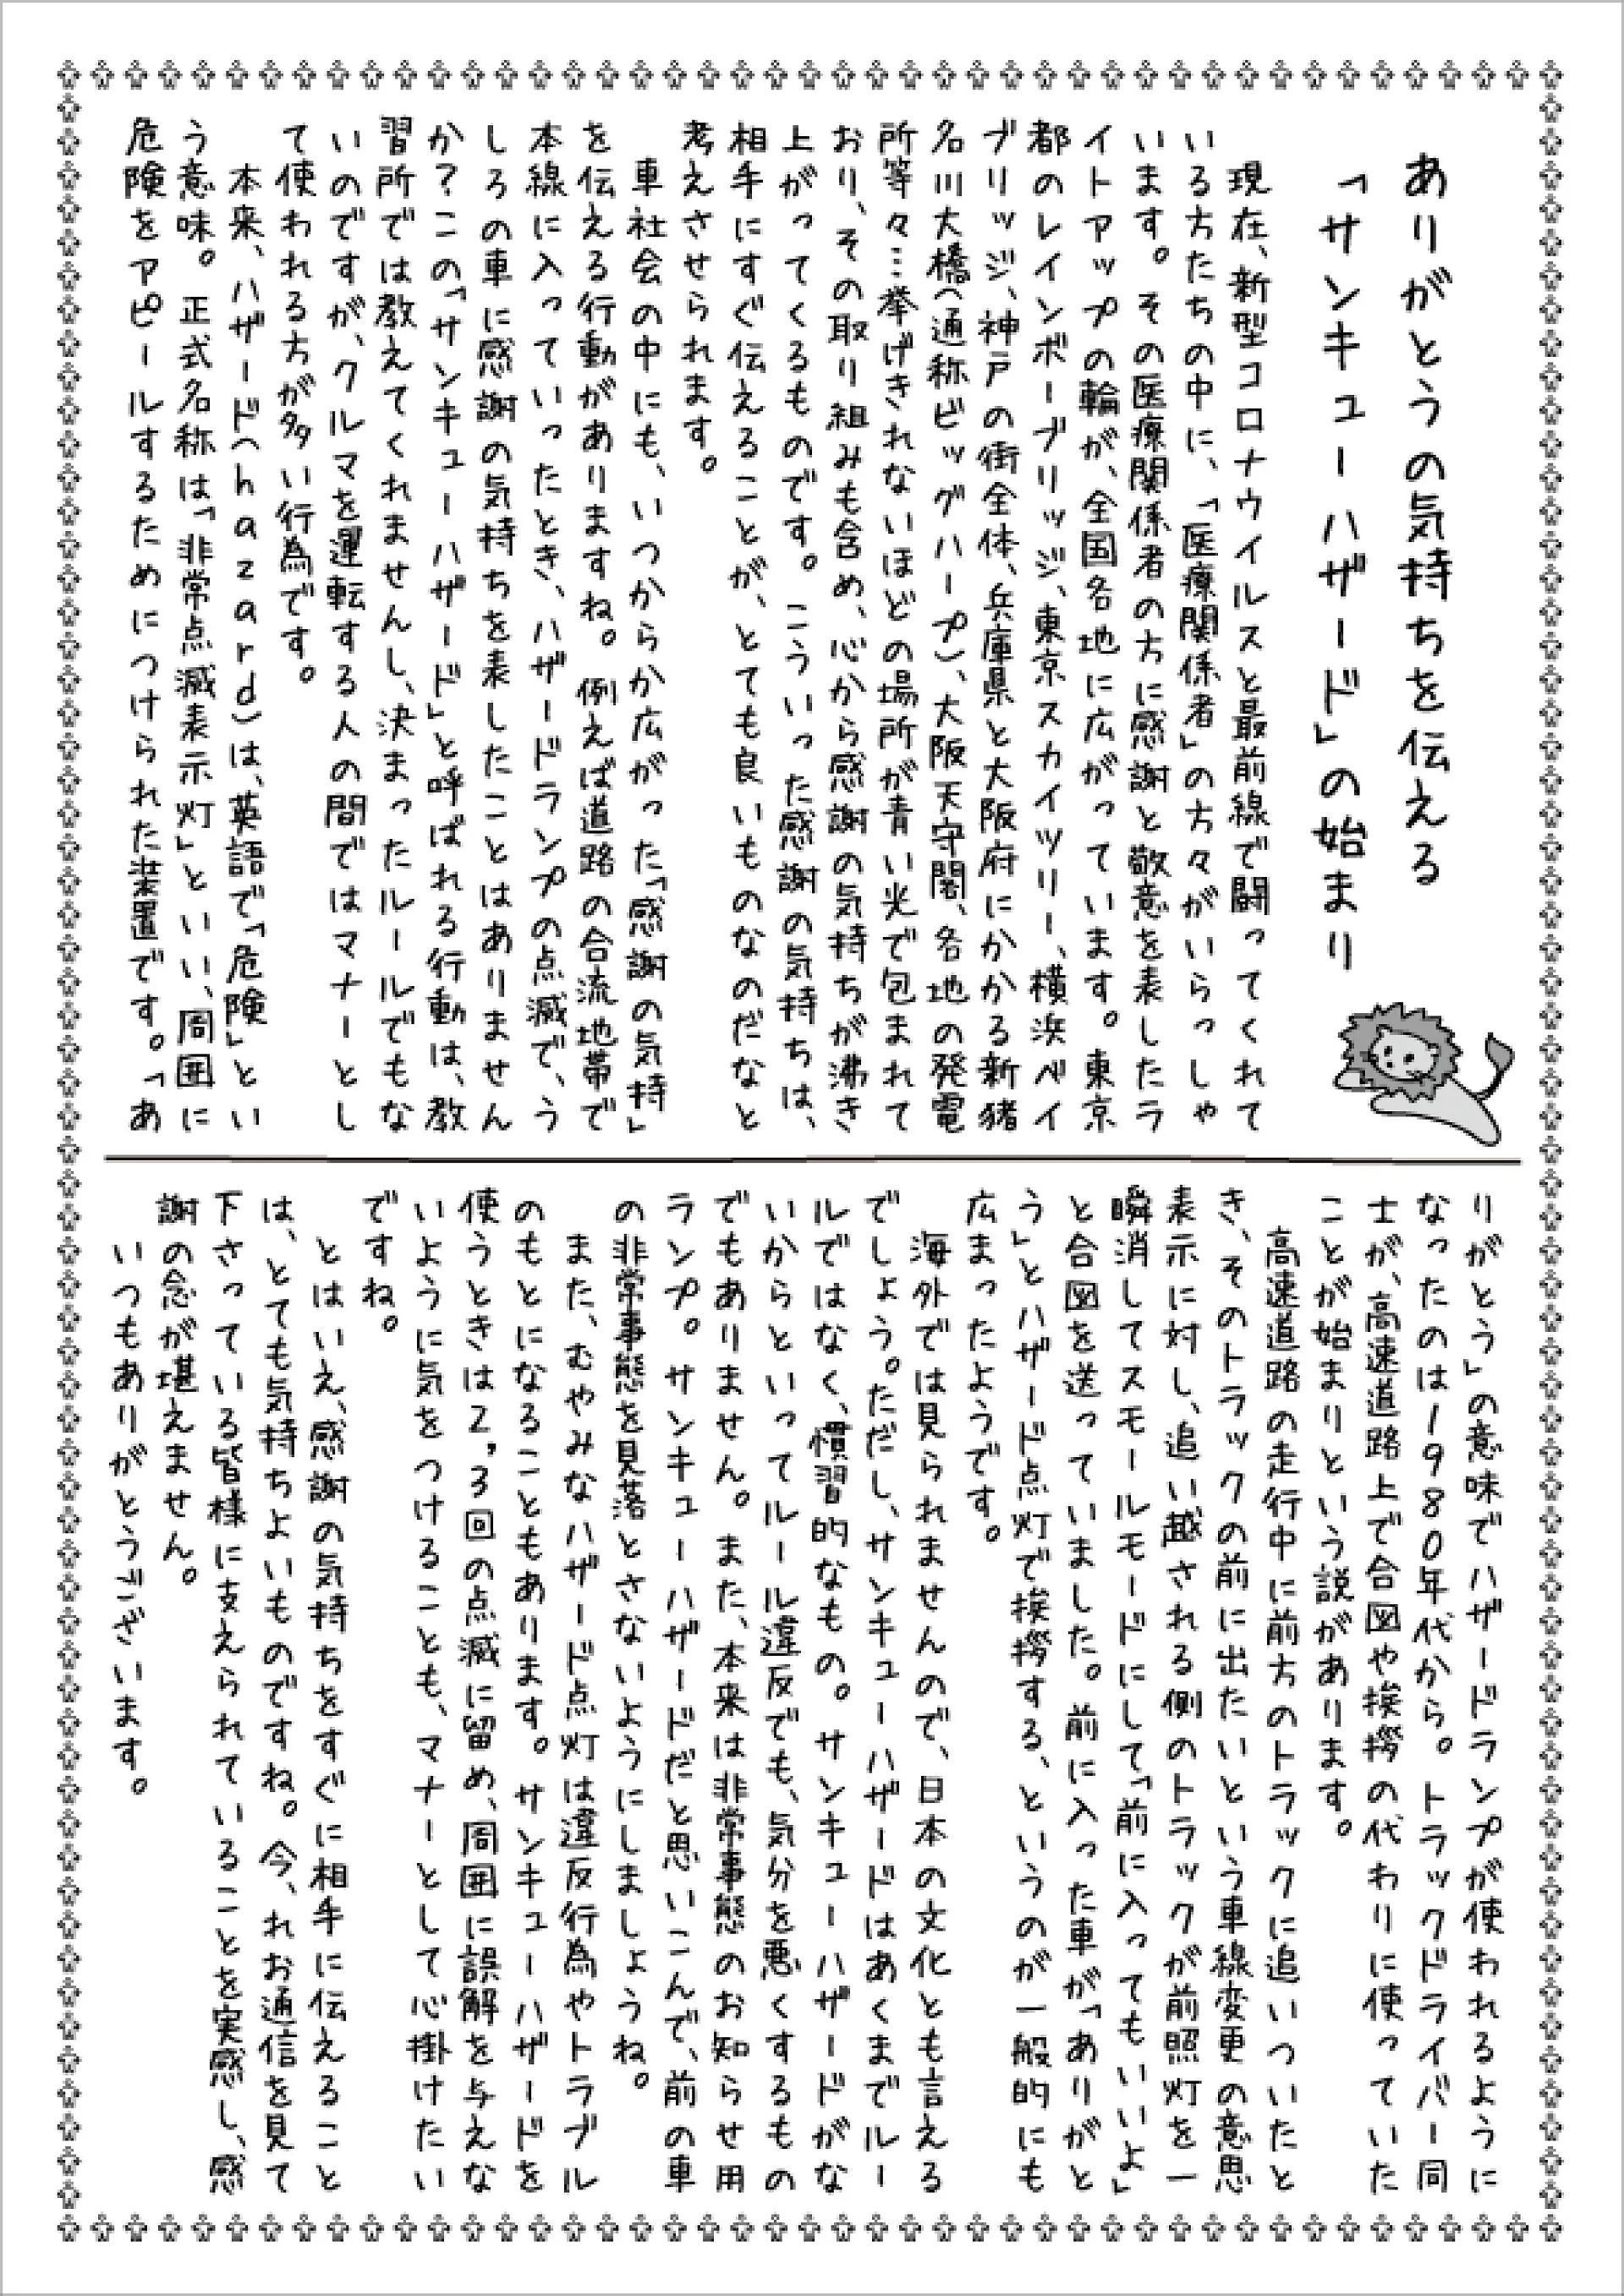 ありがとうの気持ちを伝える
「サンキューハザード」の始まり
現在、新型コロナウイルスと最前線で闘ってくれて
いる方たちの中に、「医療関係者」の方々がいらっしゃ
います。その医療関係者の方に感謝と敬意を表したラ
イトアップの輪が、全国各地に広がっています。東京
都のレインボーブリッジ、東京スカイツリー、横浜ベイ
ブリッジ、神戸の街全体、兵庫県と大阪府にかかる新猪
名川大橋(通称ビッグハープ)、大阪天守閣、各地の発電
所等々…挙げきれないほどの場所が青い光で包まれて
おり、その取り組みも含め、心から感謝の気持ちが沸き
上がってくるものです。こういった感謝の気持ちは、
相手にすぐ伝えることが、とても良いものなのだなと
考えさせられます。
車社会の中にも、いつからか広がった「感謝の気持」
を伝える行動がありますね。例えば道路の合流地帯で
本線に入っていったとき、ハザードランプの点滅で、う
しろの車に感謝の気持ちを表したことはありません
か?この「サンキューハザード」と呼ばれる行動は、教
習所では教えてくれませんし、決まったルールでもな
いのですが、クルマを運転する人の間ではマナーとし
て使われる方が多い行為です。
本来、ハザード(hazard)は、英語で「危険」とい
う意味。正式名称は「非常点滅表示灯」といい、周囲に
危険をアピールするためにつけられた装置です。「あ
りがとう」の意味でハザードランプが使われるように
なったのは1980年代から。トラックドライバー同
士が、高速道路上で合図や挨拶の代わりに使っていた
ことが始まりという説があります。
高速道路の走行中に前方のトラックに追いついたと
き、そのトラックの前に出たいという車線変更の意思
表示に対し、追い越される側のトラックが前照灯を一
瞬消してスモールモードにして「前に入ってもいいよ」
と合図を送っていました。前に入った車が「ありがと
う」とハザード点灯で挨拶する、というのが一般的にも
広まったようです。
海外では見られませんので、日本の文化とも言える
でしょう。ただし、サンキューハザードはあくまでルー
ルではなく、慣習的なもの。サンキューハザードがな
いからといってルール違反でも、気分を悪くするもの
でもありません。また、本来は非常事態のお知らせ用
ランプ。サンキューハザードだと思いこんで、前の車
の非常事態を見落とさないようにしましょうね。
また、むやみなハザード点灯は違反行為やトラブル
のもとになることもあります。サンキューハザードを
使うときは2,3回の点滅に留め、周囲に誤解を与えな
いように気をつけることも、マナーとして心掛けたい
ですね。
とはいえ、感謝の気持ちをすぐに相手に伝えること
は、とても気持ちよいものですね。今、れお通信を見て
下さっている皆様に支えられていることを実感し、感
謝の念が堪えません。
いつもありがとうございます。